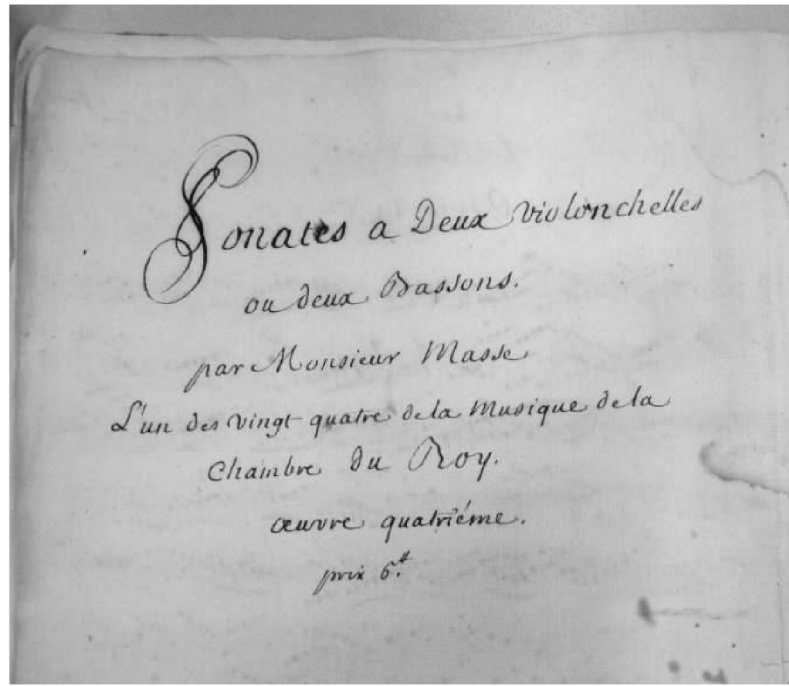 Sonates a Deux violonchelles
ou deux Bassons.
par Monsieur Masse
L'un des vingt quatre de la Musique de la
Chambre du Roy.
œuvre quatriéme.
prix 6.ᵗᵗ